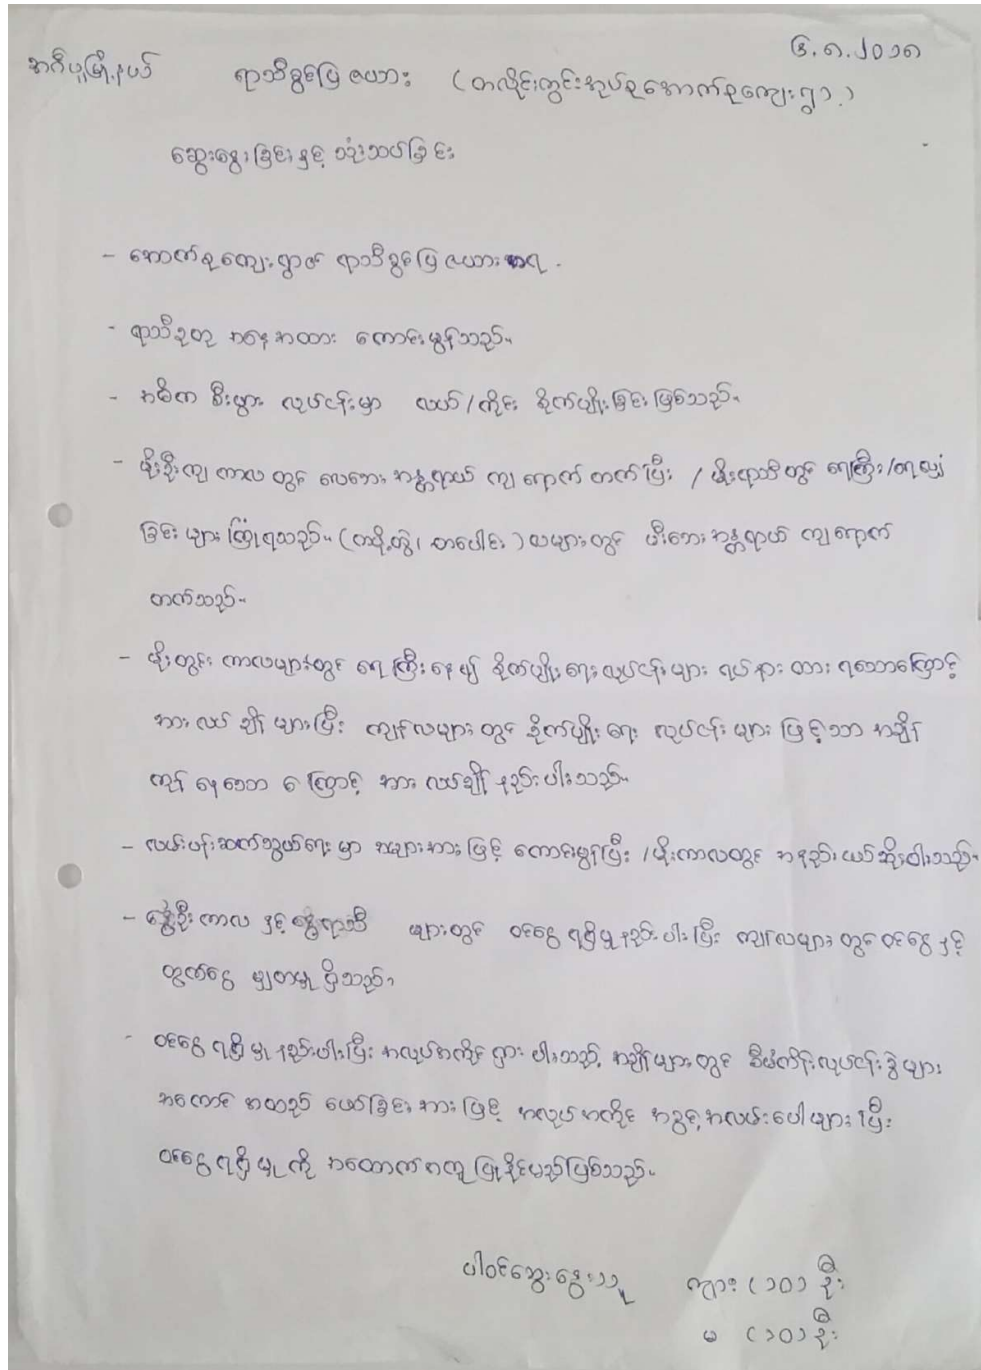 ၆.၈.၂၀၁၈
အင်္ဂပူမြို့နယ် ရာသီခွင်ပြဇယား (တလိုင်းကွင်းအုပ်စုအောက်စုကျေးရွာ)
ဆွေးနွေးခြင်းနှင့် သုံးသပ်ခြင်း
- အောက်စုကျေးရွာ၏ ရာသီခွင်ပြဇယားအရ
- ရာသီဥတု အနေအထား ကောင်းမွန်သည်။
- အဓိက စီးပွား လုပ်ငန်းမှာ လယ်/ကိုင်း စိုက်ပျိုးခြင်းဖြစ်သည်။
- မိုးဦးကျ ကာလ တွင် လေဘေး အန္တရာယ် ကျရောက် တတ်ပြီး / မိုးရာသီတွင် ရေကြီး/ရေလျှံ
ခြင်းများ ကြုံရသည်။ (တပို့တွဲ၊ တပေါင်း) လများတွင် မီးဘေးအန္တရာယ် ကျရောက်
တတ်သည်။
- မိုးတွင်း ကာလများတွင် ရေကြီးနေ၍ စိုက်ပျိုးရေးလုပ်ငန်းများ ရပ်နားထား ရသောကြောင့်
အားလပ်ချိန်များပြီး ကျန်လများတွင် စိုက်ပျိုးရေး လုပ်ငန်းများဖြင့်သာ အချိန်
ကုန်နေသောကြောင့် အားလပ်ချိန်နည်းပါးသည်။
- လမ်းပန်းဆက်သွယ်ရေးမှာ အများအားဖြင့် ကောင်းမွန်ပြီး /မိုးကာလတွင် အနည်းငယ်ဆိုးဝါးသည်။
- နွေဦးကာလ နှင့်နွေရာသီ များတွင် ဝင်ငွေ ရရှိမှုနည်းပါးပြီး ကျန်လများတွင် ဝင်ငွေနှင့်
ထွက်ငွေ မျှတမှု ရှိသည်။
- ဝင်ငွေရရှိမှု နည်းပါးပြီး အလုပ်အကိုင် ရှားပါးသည့် အချိန်များတွင် စီမံကိန်းလုပ်ငန်းခွဲများ
အကောင်အထည် ဖော်ခြင်းအားဖြင့် အလုပ်အကိုင် အခွင့်အလမ်းပေါများပြီး
ဝင်ငွေရရှိမှုကို အထောက်အကူပြုနိုင်မည်ဖြစ်သည်။
ပါဝင်ဆွေးနွေးသူ ကျား (၁၀) ဦး
မ (၁၀) ဦး